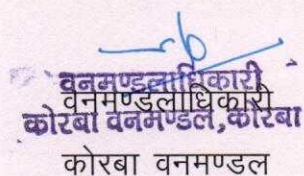 वनमण्डलाधिकारी
वनमण्डलाधिकारी
कोरबा वनमण्डल, कोरबा
कोरबा वनमण्डल